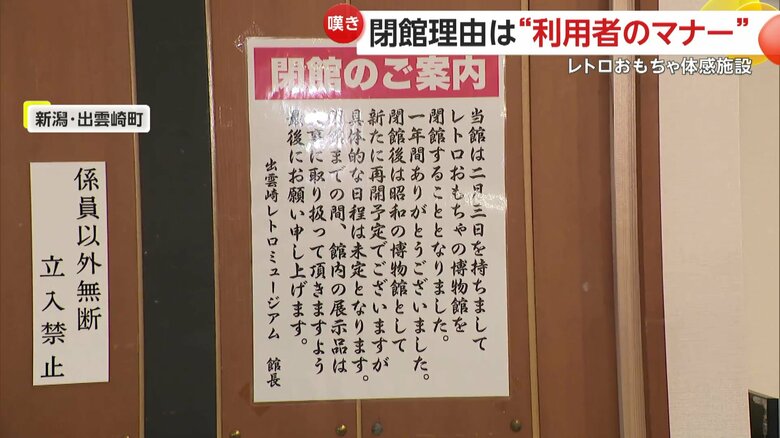 嘆き
閉館理由は“利用者のマナー”
レトロおもちゃ体感施設
新潟・出雲崎町
係員以外無断
立入禁止
閉館のご案内
当館は二月三日を持ちまして
レトロおもちゃの博物館を
閉館することとなりました。
一年間ありがとうございました。
閉館後は昭和の博物館として
新たに再開予定でございますが
具体的な日程は未定となります。
閉館までの間、館内の展示品は
に取り扱って頂きますよう
最後にお願い申し上げます。
出雲崎レトロミュージアム 館長